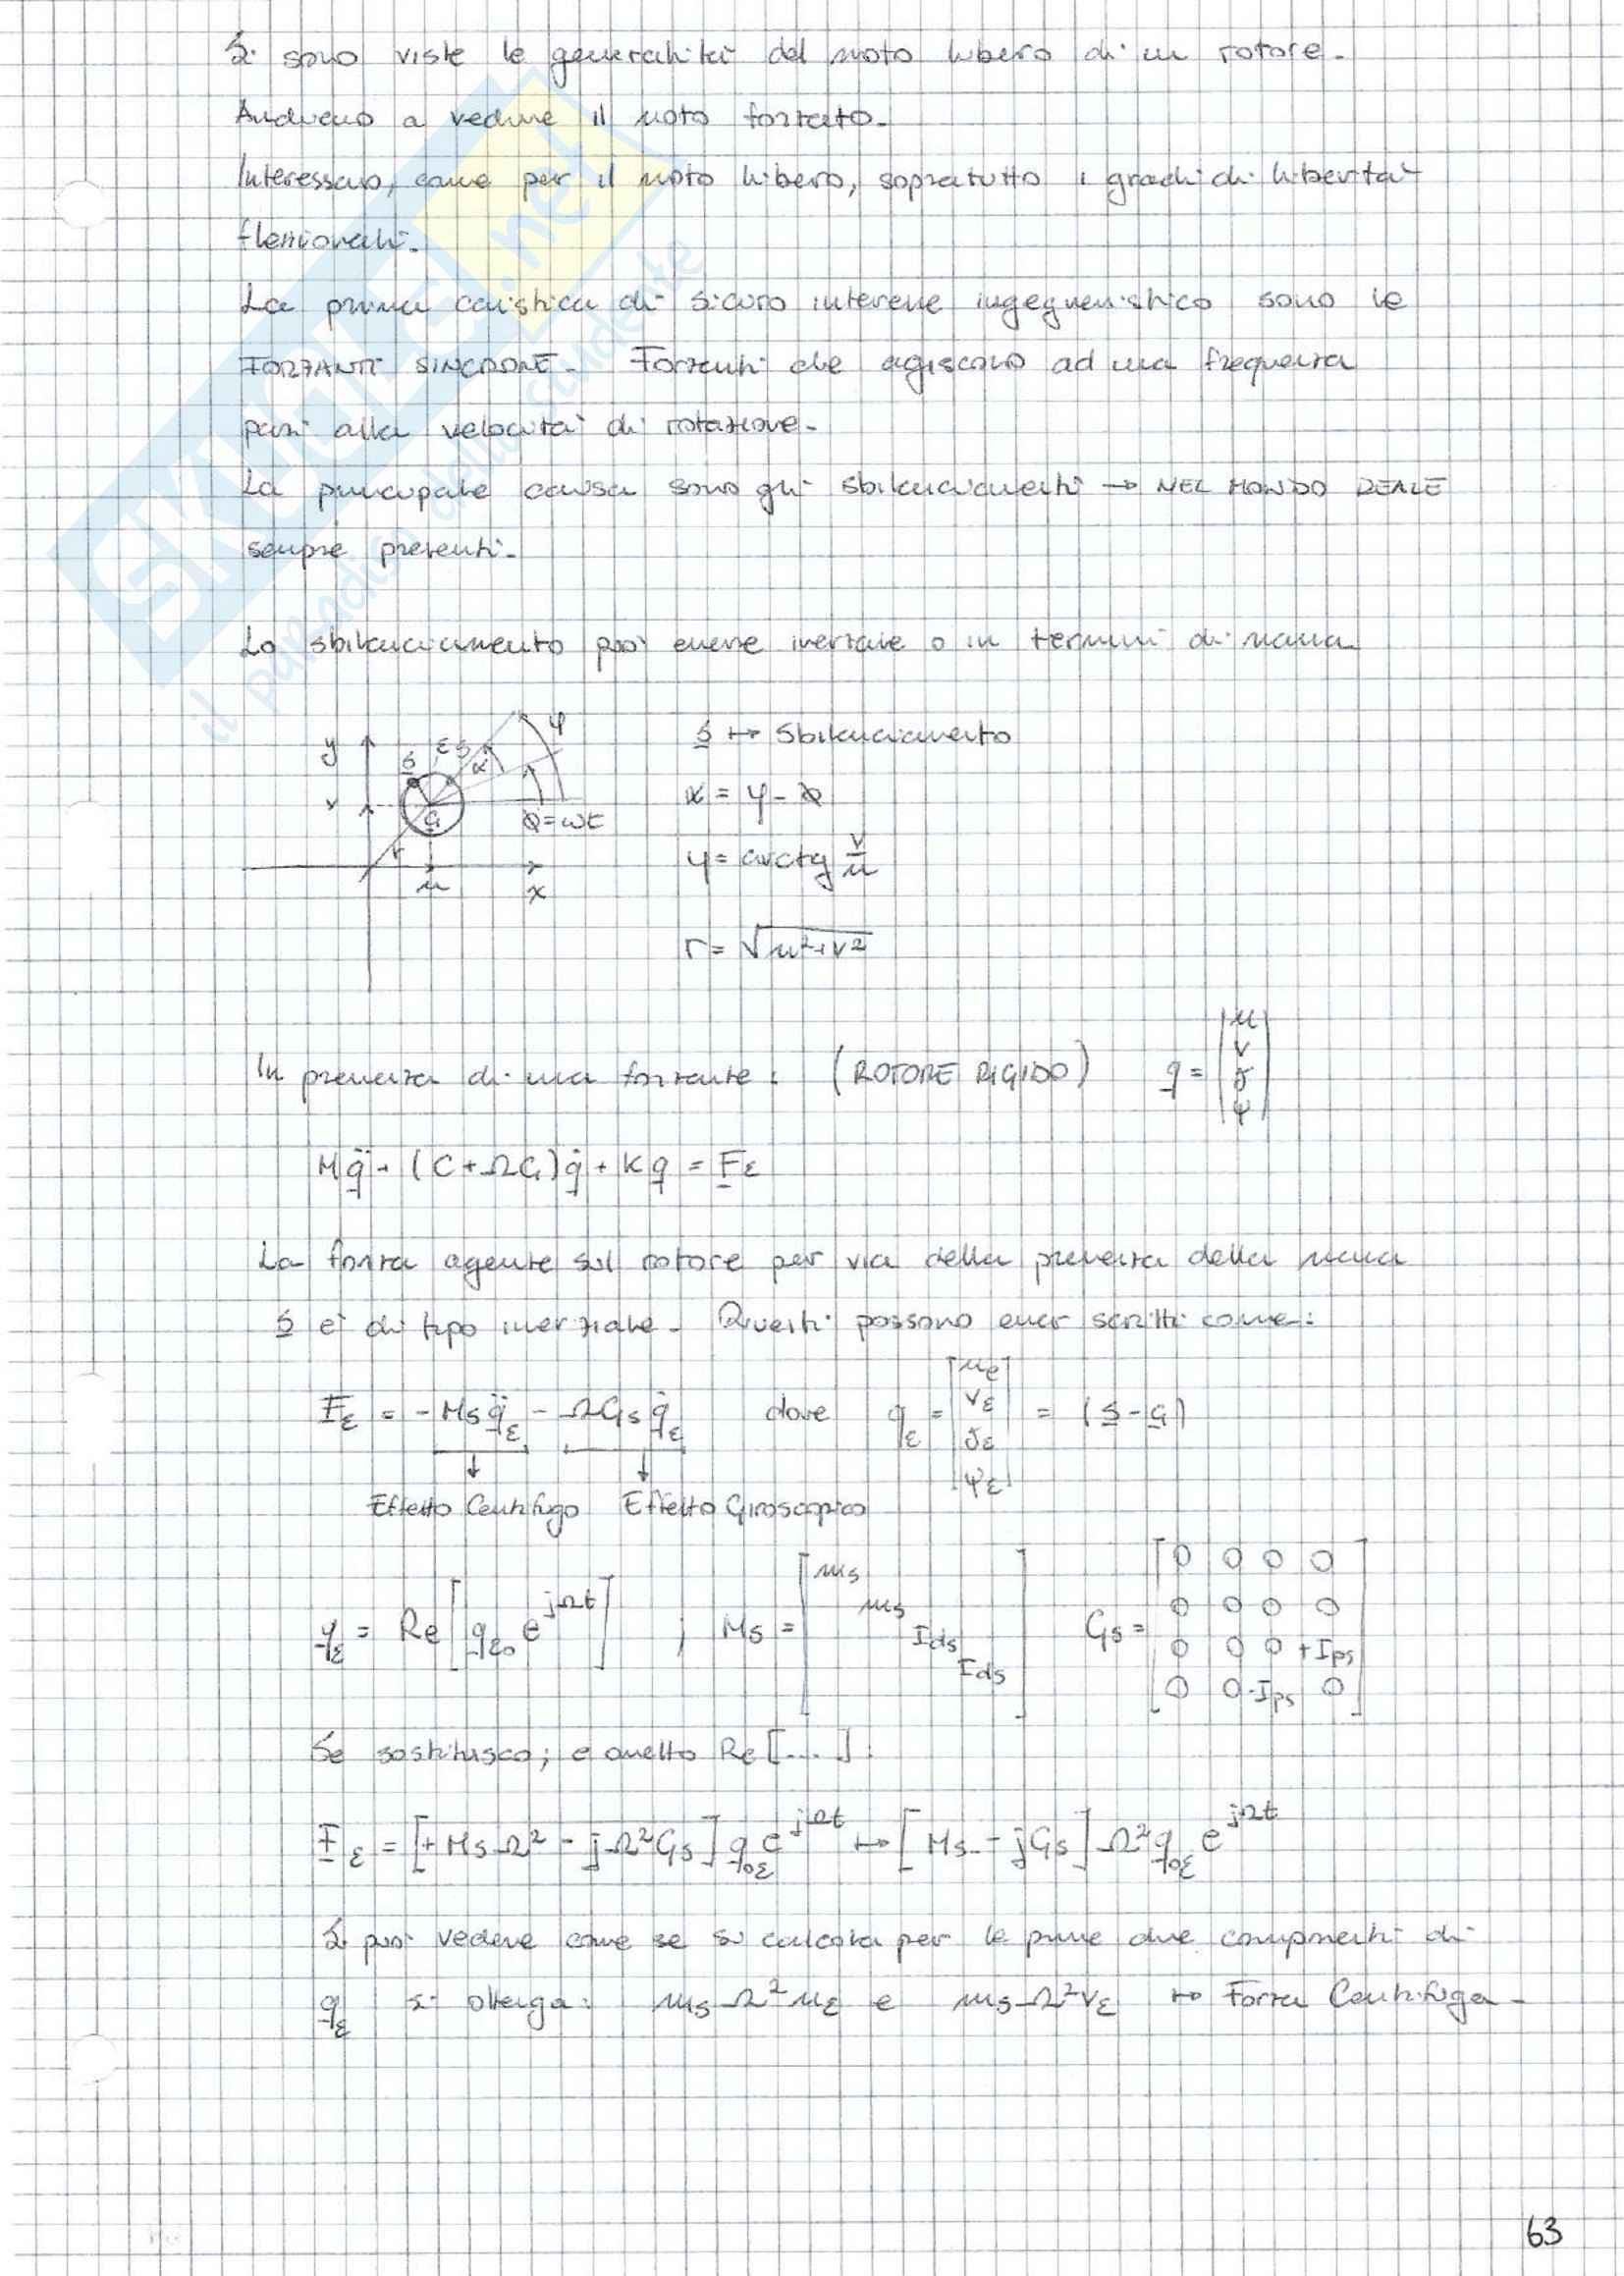 Si sono viste le generalità del moto libero di un rotore.
Andremo a vedere il moto forzato.
Interessano, come per il moto libero, sopratutto i gradi di libertà
flessionali.
La prima casistica di sicuro interesse ingegneristico sono le
FORZANTI SINCRONE. Forzanti che agiscono ad una frequenza
pari alla velocità di rotazione.
La principale causa sono gli sbilanciamenti → NEL MONDO REALE
sempre presenti.
Lo sbilanciamento può essere inerziale o in termini di massa
y S ε φ
α
v G θ=ωt
r
u x
S ↦ Sbilanciamento
α = φ - θ
φ = arctg v/u
r = √u²+v²
In presenza di una forzante: (ROTORE RIGIDO) q = |u v γ ψ|
Mq̈ + (C+ΩG)q̇ + Kq = Fε
La forza agente sul rotore per via della presenza della massa
S è di tipo inerziale. Questi possono esser scritti come:
Fε = -Ms q̈ε - ΩGs q̇ε dove qε = [uε vε γε ψε] = (S-G)
Effetto Centrifugo Effetto Giroscopico
qε = Re[qε₀ e^jΩt] ; Ms = [ms ms Ids Ids] Gs = [0 0 0 0
0 0 0 0
0 0 0 +Ips
0 0 -Ips 0]
Se sostituisco; e ometto Re[....]:
Fε = [+MsΩ² - jΩ²Gs] q₀ε e^jΩt ↦ [Ms - jGs] Ω² q₀ε e^jΩt
Si può vedere come se si calcola per le prime due componenti di
qε si ottenga: msΩ²uε e msΩ²vε ↦ Forza Centrifuga.
63
SKUOLA.net
il paradiso dello studente